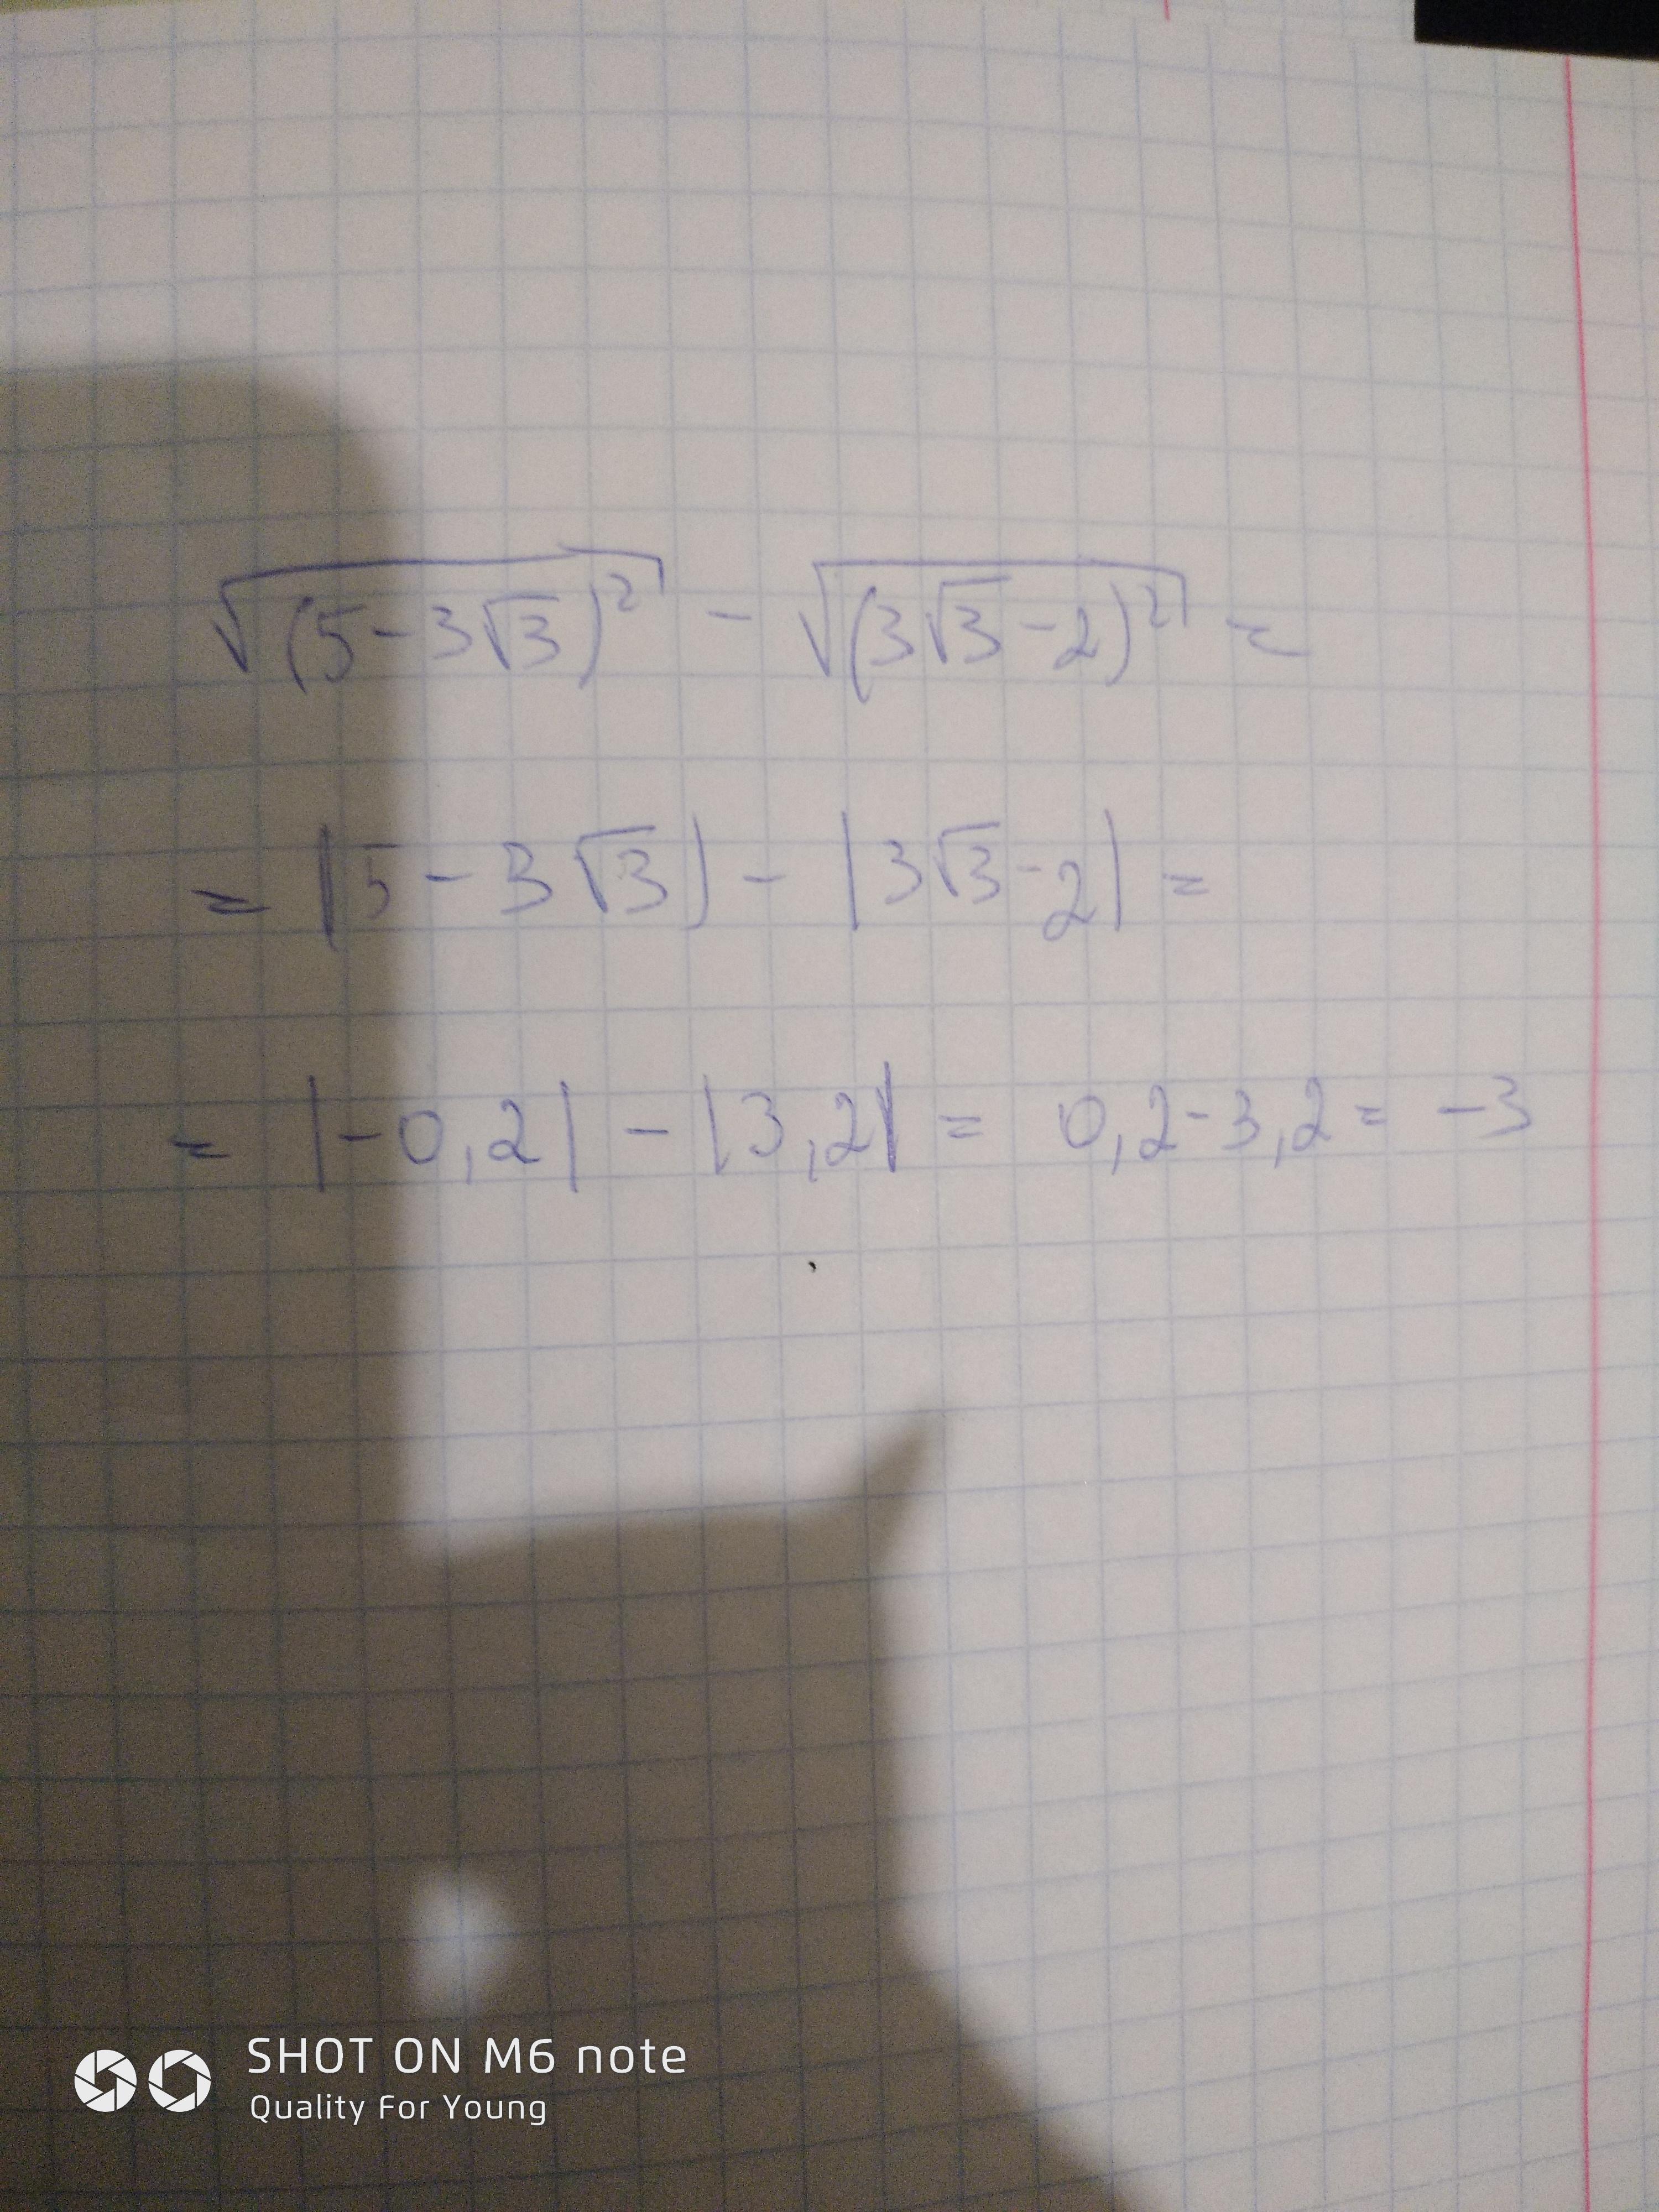 √(5-3√3)² - √(3√3-2)² =
= |5-3√3| - |3√3-2| =
= |-0,2| - |3,2| = 0,2-3,2 = -3
SHOT ON M6 note
Quality For Young